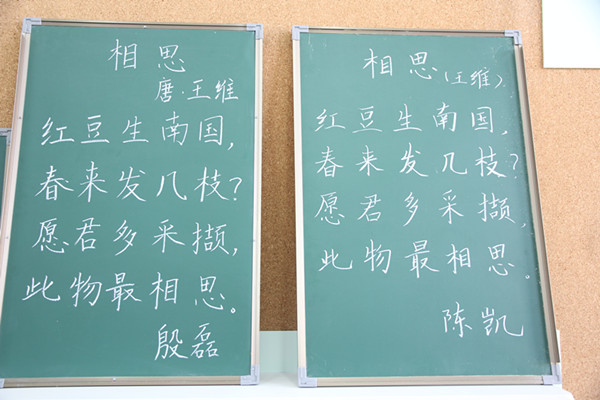 相思
唐·王维
红豆生南国,
春来发几枝?
愿君多采撷,
此物最相思。
殷磊
相思(王维)
红豆生南国,
春来发几枝?
愿君多采撷,
此物最相思。
陈凯